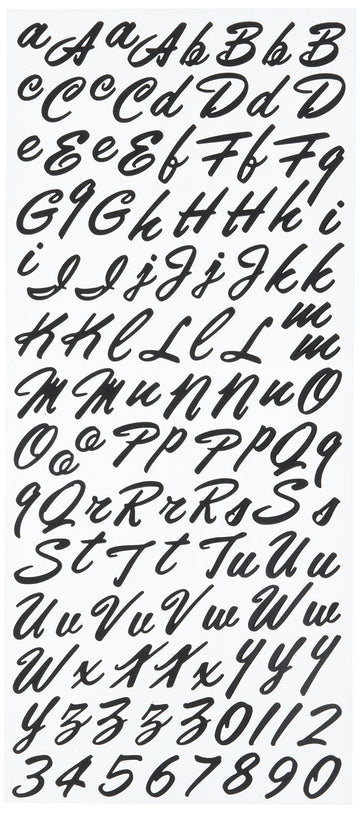 a A a A b B b B
c C c C d D d D
e E e E f F f F g
G g G h H H h i
i I I j J j J k k
K K l L l L m m
M M n N N n O
O o o P p P p Q q
q Q r R r R s S s
S t T t T u U u
U v V v V w W w
W x X X x y Y y
Y z Z z Z 0 1 1 2
3 4 5 6 7 8 9 0